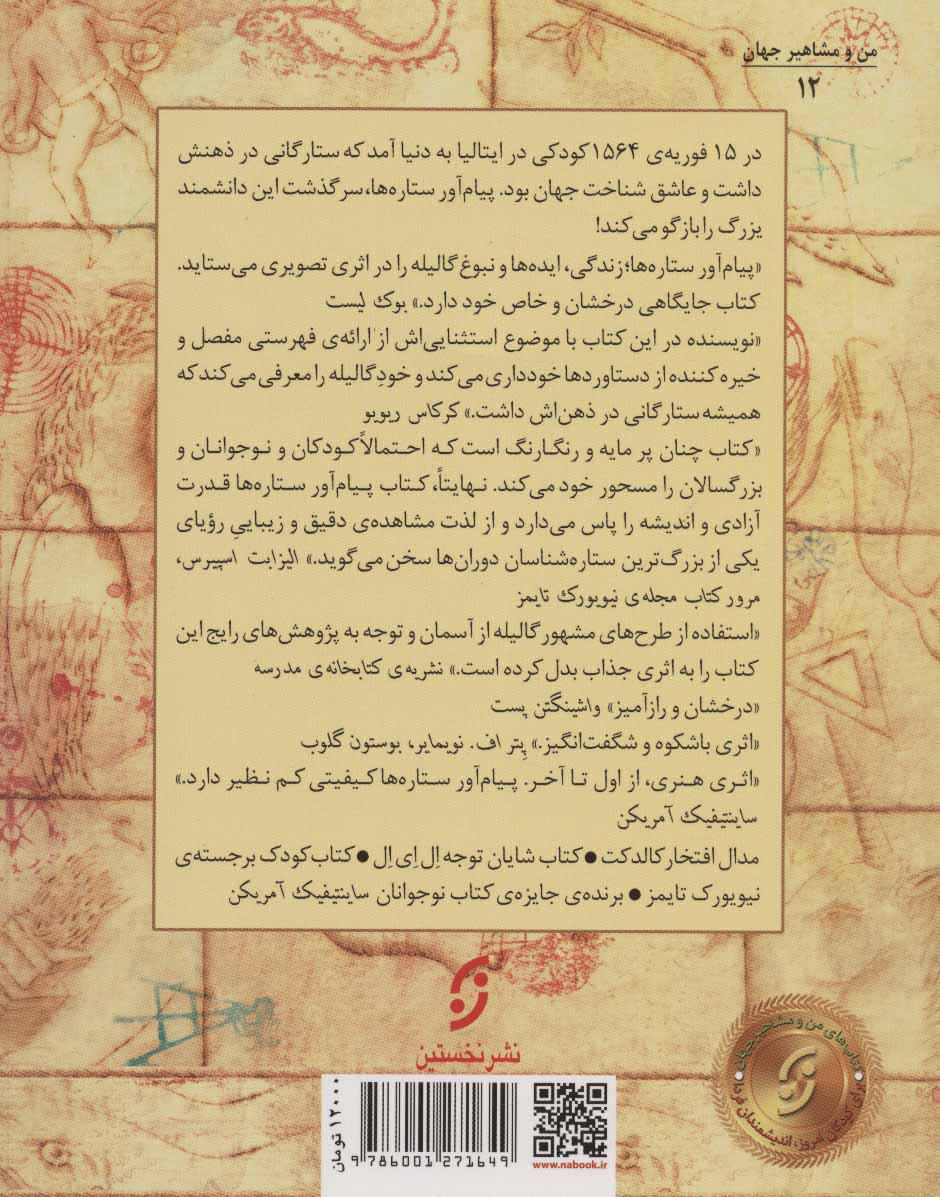 من و مشاهیر جهان
۱۲
در ۱۵ فوریه‌ی ۱۵۶۴ کودکی در ایتالیا به دنیا آمد که ستارگانی در ذهنش
داشت و عاشق شناخت جهان بود. پیام‌آور ستاره‌ها، سرگذشت این دانشمند
بزرگ را بازگو می‌کند!
«پیام‌آور ستاره‌ها؛ زندگی، ایده‌ها و نبوغ گالیله را در اثری تصویری می‌ستاید.
کتاب جایگاهی درخشان و خاص خود دارد.» بوک لیست
«نویسنده در این کتاب با موضوع استثنایی‌اش از ارائه‌ی فهرستی مفصل و
خیره کننده از دستاوردها خودداری می‌کند و خودِ گالیله را معرفی می‌کند که
همیشه ستارگانی در ذهن‌اش داشت.» کرکاس ریویو
«کتاب چنان پر مایه و رنگارنگ است که احتمالاً کودکان و نوجوانان و
بزرگسالان را مسحور خود می‌کند. نهایتاً، کتاب پیام‌آور ستاره‌ها قدرت
آزادی و اندیشه را پاس می‌دارد و از لذت مشاهده‌ی دقیق و زیباییِ رؤیای
یکی از بزرگ‌ترین ستاره‌شناسان دوران‌ها سخن می‌گوید.» الیزابت اسپیرس،
مرور کتاب مجله‌ی نیویورک تایمز
«استفاده از طرح‌های مشهور گالیله از آسمان و توجه به پژوهش‌های رایج این
کتاب را به اثری جذاب بدل کرده است.» نشریه‌ی کتابخانه‌ی مدرسه
«درخشان و رازآمیز» واشینگتن پست
«اثری باشکوه و شگفت‌انگیز.» پِتر اف. نویمایر، بوستون گلوب
«اثری هنری، از اول تا آخر. پیام‌آور ستاره‌ها کیفیتی کم نظیر دارد.»
ساینتیفیک آمریکن
مدال افتخار کالدکت ● کتاب شایان توجه اِل اِی اِل ● کتاب کودک برجسته‌ی
نیویورک تایمز ● برنده‌ی جایزه‌ی کتاب نوجوانان ساینتیفیک آمریکن
نشر نخستین
۱۲۰۰۰ تومان
9 786001 271649
www.nabook.ir
کتاب‌های من و مشاهیر جهان
برای کودکان امروز، اندیشمندان فردا